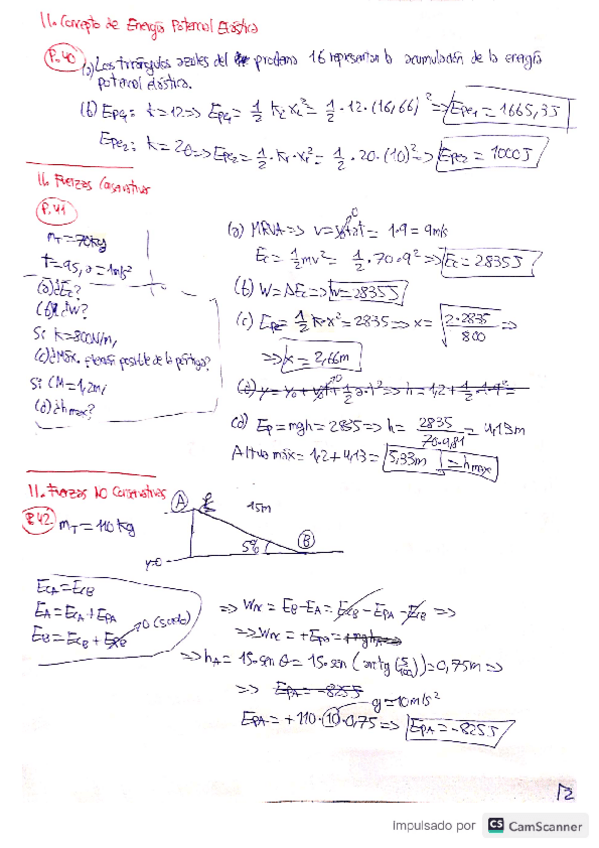 11. Concepto de Energía Potencial Elástica
P.40 (a) Los triángulos azules del problema 16 representan la acumulación de la energía
potencial elástica.
(b) Epe₁: k=12 => Epe₁ = 1/2 · k · x₁² = 1/2 · 12 · (16,66)² => Epe₁ = 1665,3J
Epe₂: k=20 => Epe₂ = 1/2 · k · x² = 1/2 · 20 · (10)² => Epe₂ = 1000J
11. Fuerzas Conservativas
P.41
m_T = 70kg
t = 9s, a = 1m/s²
(a) ¿Ec?
(b) ¿W?
Si k=800N/m,
(c) ¿Máx. posible de la pértiga?
Si CM = 1,2m,
(d) ¿h max?
(a) MRVA => v = v₀+at = 1·9 = 9m/s
Ec = 1/2 mv² = 1/2 · 70 · 9² => Ec = 2835J
(b) W = ΔEc => W = 2835J
(c) Epe = 1/2 k·x² = 2835 => x = √(2·2835/800) =>
=> x = 2,66m
(d) y = y₀ + v₀t + 1/2 a·t² => h = 1,2 +
(d) Ep = mgh = 2835 => h = 2835/70·9,81 = 4,13m
Altura máx = 1,2 + 4,13 = 5,33m = h max
11. Fuerzas No Conservativas
P.42 m_T = 110kg
A 15m
5% B
y=0
EcA = EcB
EA = EcA + EpA
EB = EcB + EpB 0 (suelo)
=> Wnc = EB - EA = EcB - EpA - EcB =>
=> Wnc = + EpA = + mghA
=> hA = 15·sen θ = 15·sen (arctg (5/100)) = 0,75m =>
=> EpA = -825J
g = 10m/s²
EpA = +110·10·0,75 => EpA = -825J
12
Impulsado por CS CamScanner